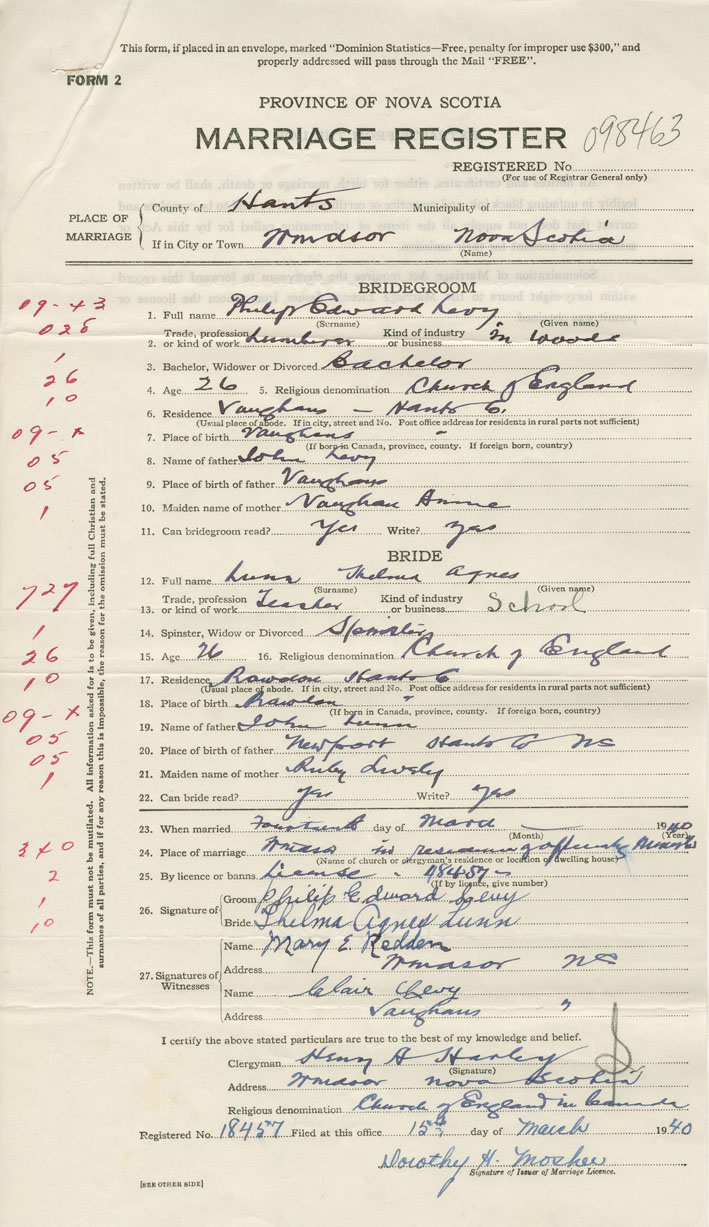 This form, if placed in an envelope, marked "Dominion Statistics—Free, penalty for improper use $300," and
properly addressed will pass through the Mail "FREE".
FORM 2
PROVINCE OF NOVA SCOTIA
MARRIAGE REGISTER 098463
REGISTERED No.
(For use of Registrar General only)
PLACE OF MARRIAGE
County of Hants Municipality of
If in City or Town Windsor Nova Scotia
(Name)
BRIDEGROOM
09-43
1. Full name Philip Edward Levy
(Surname) (Given name)
028
2. Trade, profession or kind of work Lumberer Kind of industry or business in woods
1
3. Bachelor, Widower or Divorced Bachelor
26
4. Age 26 5. Religious denomination Church of England
10
6. Residence Vaughans — Hants Co.
(Usual place of abode. If in city, street and No. Post office address for residents in rural parts not sufficient)
09-x
7. Place of birth Vaughans "
(If born in Canada, province, county. If foreign born, country)
05
8. Name of father John Levy
05
9. Place of birth of father Vaughans
1
10. Maiden name of mother Vaughan Annie
11. Can bridegroom read? Yes Write? yes
BRIDE
12. Full name Lunn Thelma Agnes
(Surname) (Given name)
727
13. Trade, profession or kind of work Teacher Kind of industry or business School
1
14. Spinster, Widow or Divorced Spinster
26
15. Age 26 16. Religious denomination Church of England
10
17. Residence Rawdon Hants Co
(Usual place of abode. If in city, street and No. Post office address for residents in rural parts not sufficient)
09-x
18. Place of birth Rawdon "
(If born in Canada, province, county. If foreign born, country)
05
19. Name of father John Lunn
05
20. Place of birth of father Newport Hants Co NS
1
21. Maiden name of mother Ruby
22. Can bride read? yes Write? yes
23. When married Fourteenth day of March 1940
(Month) (Year)
340
24. Place of marriage Windsor in residence of Minister
(Name of church or clergyman's residence or location of dwelling house)
2
25. By licence or banns License - 48457-
(If by licence, give number)
1
10
26. Signature of
Groom Philip Edward Levy
Bride Thelma Agnes Lunn
27. Signatures of Witnesses
Name Mary E. Redden
Address Windsor NS
Name Clair Levy
Address Vaughans "
I certify the above stated particulars are true to the best of my knowledge and belief.
Clergyman Henry A Harley
(Signature)
Address Windsor Nova Scotia
Religious denomination Church of England in Canada
Registered No. 18457 Filed at this office 15th day of March 1940
Dorothy H. Mosher
Signature of Issuer of Marriage Licence.
[SEE OTHER SIDE]
NOTE.—This form must not be mutilated. All information asked for is to be given, including full Christian and
surnames of all parties, and if for any reason this is impossible, the reason for the omission must be stated.